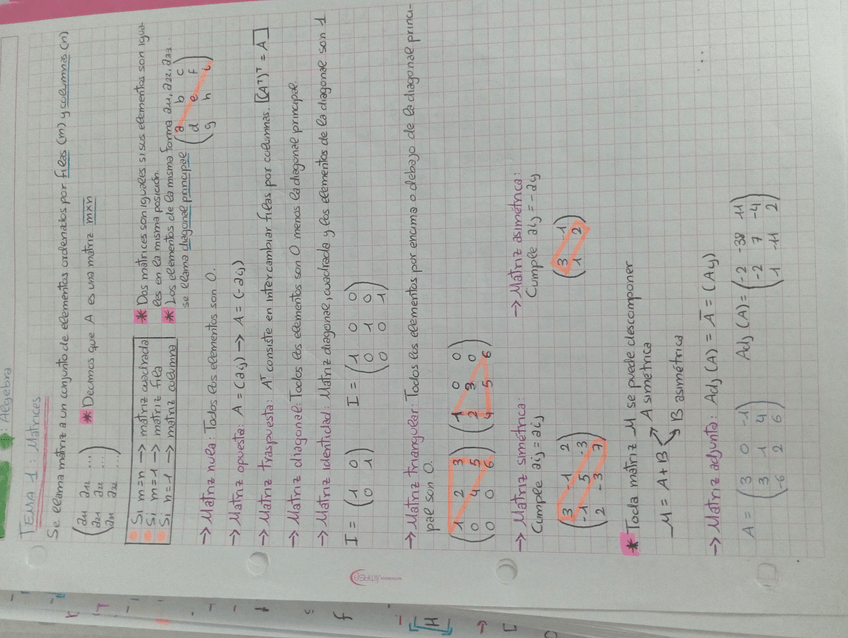 Álgebra
TEMA 1: Matrices
Se llama matriz a un conjunto de elementos ordenados por filas (m) y columnas (n)
* Decimos que A es una matriz mxn
Si m=n → matriz cuadrada
Si m=1 → matriz fila
Si n=1 → matriz columna
* Dos matrices son iguales si sus elementos son igua-
les en la misma posición.
* Los elementos de la misma forma a11, a22, a33
se llama diagonal principal
a b c
d e f
g h i
→ Matriz nula: Todos los elementos son 0.
→ Matriz opuesta: A = (aij) → A = (-aij)
→ Matriz traspuesta: Aᵀ consiste en intercambiar filas por columnas. [(Aᵀ)ᵀ = A]
→ Matriz diagonal: Todos los elementos son 0 menos la diagonal principal.
→ Matriz identidad: Matriz diagonal, cuadrada y los elementos de la diagonal son 1.
I = (1 0
0 1)
I = (1 0 0
0 1 0
0 0 1)
→ Matriz triangular: Todos los elementos por encima o debajo de la diagonal princi-
pal son 0.
(1 2 3
0 4 5
0 0 6)
(1 0 0
2 3 0
4 5 6)
→ Matriz simétrica:
Cumple aij = aij
(3 -1 2
-1 5 -3
2 -3 7)
→ Matriz asimétrica:
Cumple aij = -aij
(3 -1
1 2)
* Toda matriz M se puede descomponer
M = A + B
A simétrica
B asimétrica
→ Matriz adjunta: Adj (A) = A̅ = (Aij)
A = (3 0 -1
3 1 4
-6 2 6)
Adj (A) = (-2 -38 11
-2 7 -4
1 -11 2)